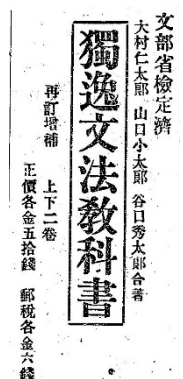 文部省檢定濟
大村仁太郎 山口小太郎 谷口秀太郎合著
獨逸文法教科書
再訂增補 上下二卷
正價各金五拾錢 郵稅各金六錢